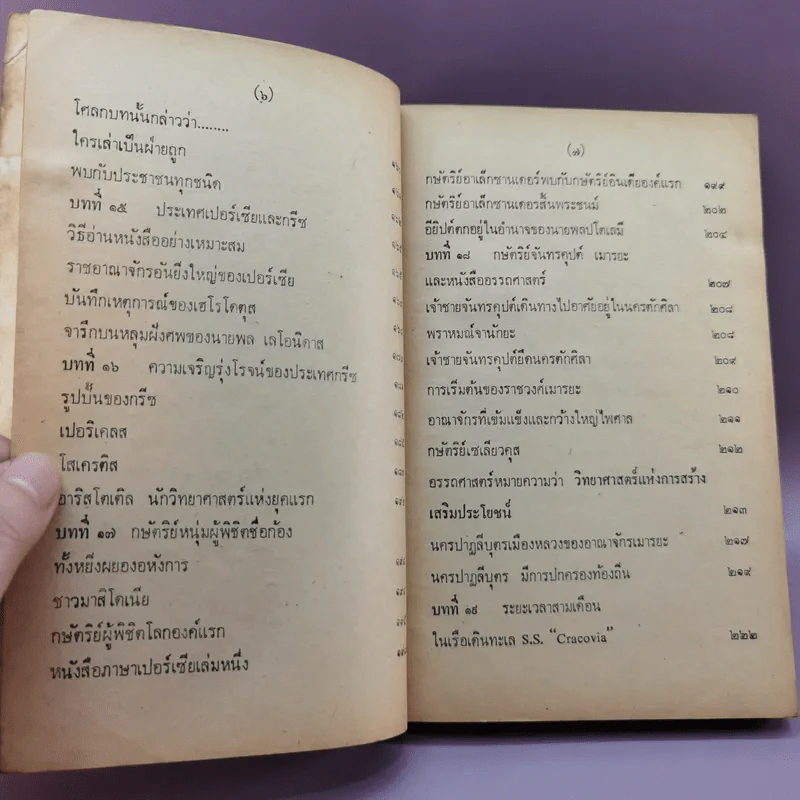 (๖)
โศลกบทนั้นกล่าวว่า........
ใครเล่าเป็นฝ่ายถูก
พบกับประชาชนทุกชนิด
บทที่ ๑๕ ประเทศเปอร์เซียและกรีซ
วิธีอ่านหนังสืออย่างเหมาะสม
ราชอาณาจักรอันยิ่งใหญ่ของเปอร์เซีย
บันทึกเหตุการณ์ของเฮโรโดตุส
จารึกบนหลุมฝังศพของนายพล เลโอนิดาส
บทที่ ๑๖ ความเจริญรุ่งโรจน์ของประเทศกรีซ
รูปปั้นของกรีซ
เปอริเคลส
โสเครติส
อาริสโตเติล นักวิทยาศาสตร์แห่งยุคแรก
บทที่ ๑๗ กษัตริย์หนุ่มผู้พิชิตชื่อก้อง
ทั้งหยิ่งผยองอหังการ
ชาวมาสิโดเนีย
กษัตริย์ผู้พิชิตโลกองค์แรก
หนังสือภาษาเปอร์เซียเล่มหนึ่ง
(๗)
กษัตริย์อาเล็กซานเดอร์พบกับกษัตริย์อินเดียองค์แรก ๑๙๙
กษัตริย์อาเล็กซานเดอร์สิ้นพระชนม์ ๒๐๒
อียิปต์ตกอยู่ในอำนาจของนายพลปโตเลมี ๒๐๔
บทที่ ๑๘ กษัตริย์จันทรคุปต์ เมารยะ
และหนังสืออรรถศาสตร์ ๒๐๗
เจ้าชายจันทรคุปต์เดินทางไปอาศัยอยู่ในนครตักศิลา ๒๐๘
พราหมณ์จานักยะ ๒๐๘
เจ้าชายจันทรคุปต์ยึดนครตักศิลา ๒๐๙
การเริ่มต้นของราชวงศ์เมารยะ ๒๑๐
อาณาจักรที่เข้มแข็งและกว้างใหญ่ไพศาล ๒๑๑
กษัตริย์เซเลียวคุส ๒๑๒
อรรถศาสตร์หมายความว่า วิทยาศาสตร์แห่งการสร้าง
เสริมประโยชน์ ๒๑๓
นครปาฏลีบุตรเมืองหลวงของอาณาจักรเมารยะ ๒๑๗
นครปาฏลีบุตร มีการปกครองท้องถิ่น ๒๑๙
บทที่ ๑๙ ระยะเวลาสามเดือน
ในเรือเดินทะเล S.S. "Cracovia" ๒๒๒